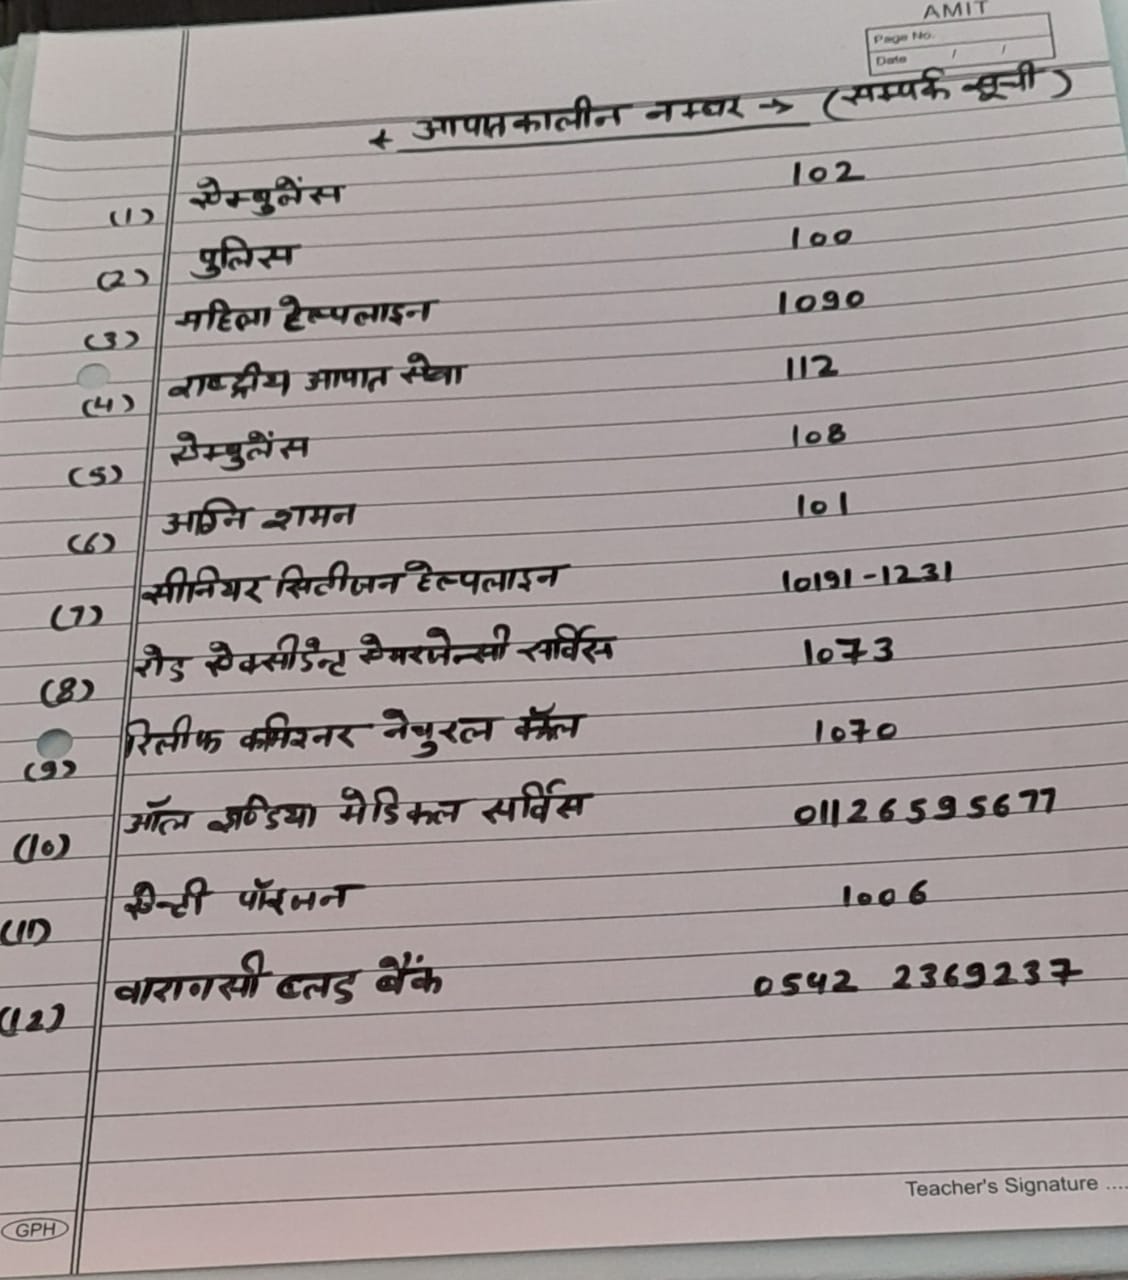 AMIT
Page No.
Date / /
+ आपातकालीन नम्बर → (सम्पर्क सूची)
(1) ऐम्बुलेंस 102
(2) पुलिस 100
(3) महिला हेल्पलाइन 1090
(4) राष्ट्रीय आपात सेवा 112
(5) ऐम्बुलेंस 108
(6) अग्नि शमन 101
(7) सीनियर सिटीजन हेल्पलाइन 10191-1231
(8) रोड ऐक्सीडेन्ट ऐमरजेन्सी सर्विस 1073
(9) रिलीफ कमिश्नर नेचुरल कॅाल 1070
(10) ऑल इण्डिया मेडिकल सर्विस 01126595677
(11) ऐन्टी पॉइजन 1006
(12) वाराणसी ब्लड बैंक 0542 2369237
Teacher's Signature ....
GPH